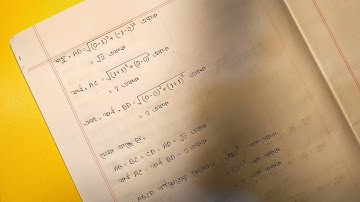 বাহু, AD = √(0-1)² + (-1-0)² একক
= √2 একক
কর্ণ, AC = √(1+1)² + (0-0)² একক
= 2 একক
এবং, কর্ণ, BD = √(0-0)² + (1+1)² একক
= 2 একক
দেখা যাচ্ছে যে,
AB = BC = CD = AD = √2 একক
এবং কর্ণ AC = কর্ণ BD = 2 একক
ABCD